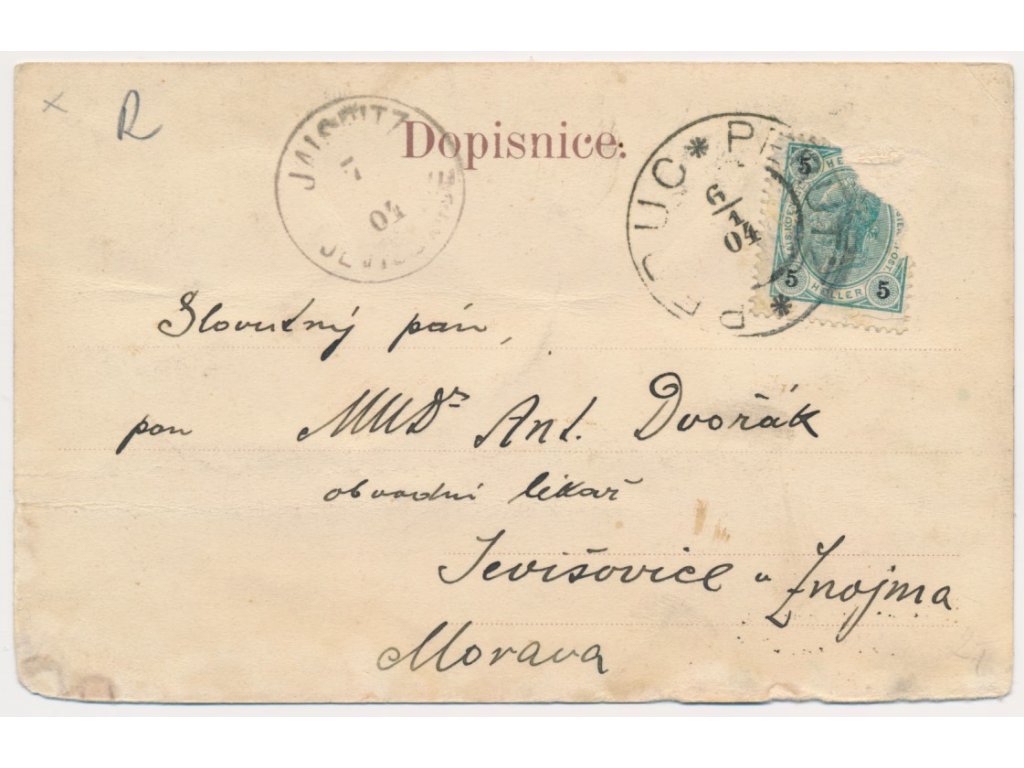 R
Dopisnice.
JAISPITZ
04
PERUC
6/1
04
5
5 HELLER 5
Slovutný pán,
pan MUDr Ant. Dvořák
obvodní lékař
Jevišovice u Znojma
Morava